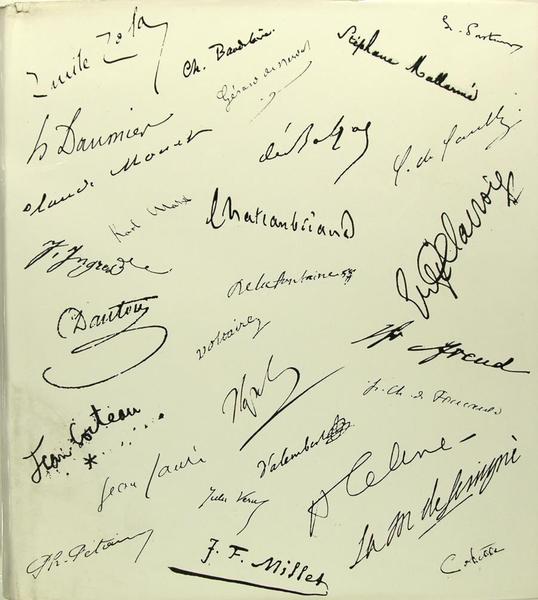 Emile Zola
Ch. Baudelaire.
Gérard de Nerval
Stéphane Mallarmé
L. Pasteur
h. Daumier
Claude Monet
de Balzac
C. de Gaulle
Karl Marx
Chateaubriand
Eug Delacroix
J. Ingres
De la fontaine
Danton
Voltaire
Freud
Jean Cocteau
*
Jean Jaurès
D'alembert
Jules Verne
Céline
La M de Sévigné
Ph. Pétain
J. F. Millet
Colette